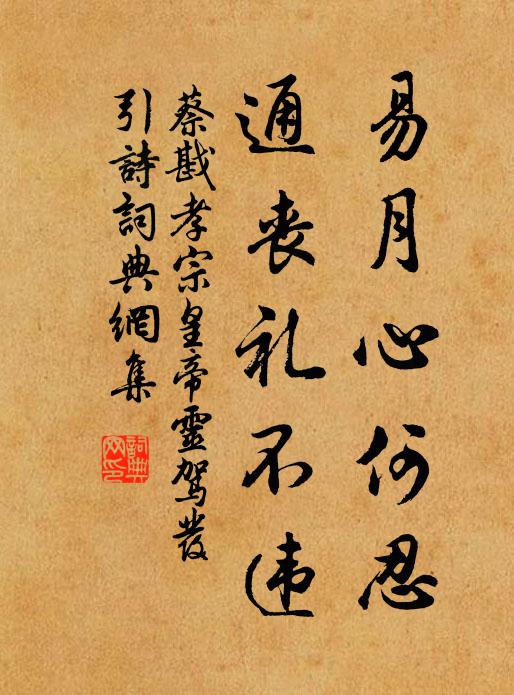 易月心何忍
通丧礼不违
蔡戡孝宗皇帝靈驾發
引詩詞典網集
詞典
网印